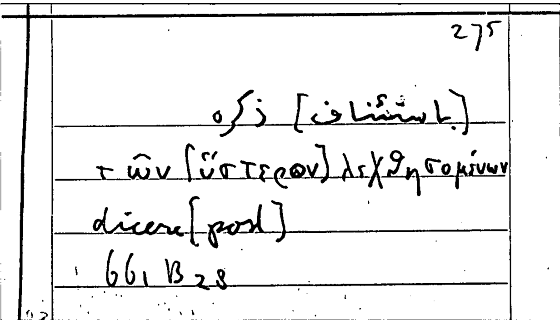 275
ذكره [باستئناف]
τῶν [ὕστερον] λεχθησομένων
dicere [post]
661 B 28